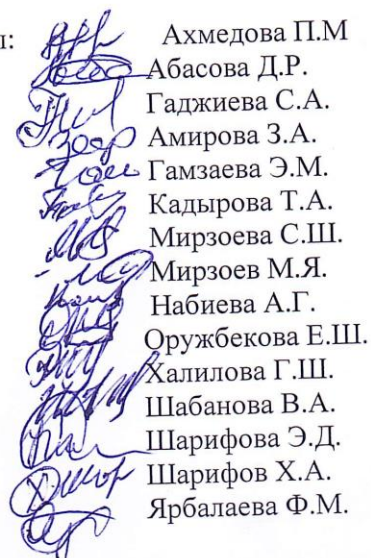 ы: Ахмедова П.М
Абасова Д.Р.
Гаджиева С.А.
Амирова З.А.
Гамзаева Э.М.
Кадырова Т.А.
Мирзоева С.Ш.
Мирзоев М.Я.
Набиева А.Г.
Оружбекова Е.Ш.
Халилова Г.Ш.
Шабанова В.А.
Шарифова Э.Д.
Шарифов Х.А.
Ярбалаева Ф.М.